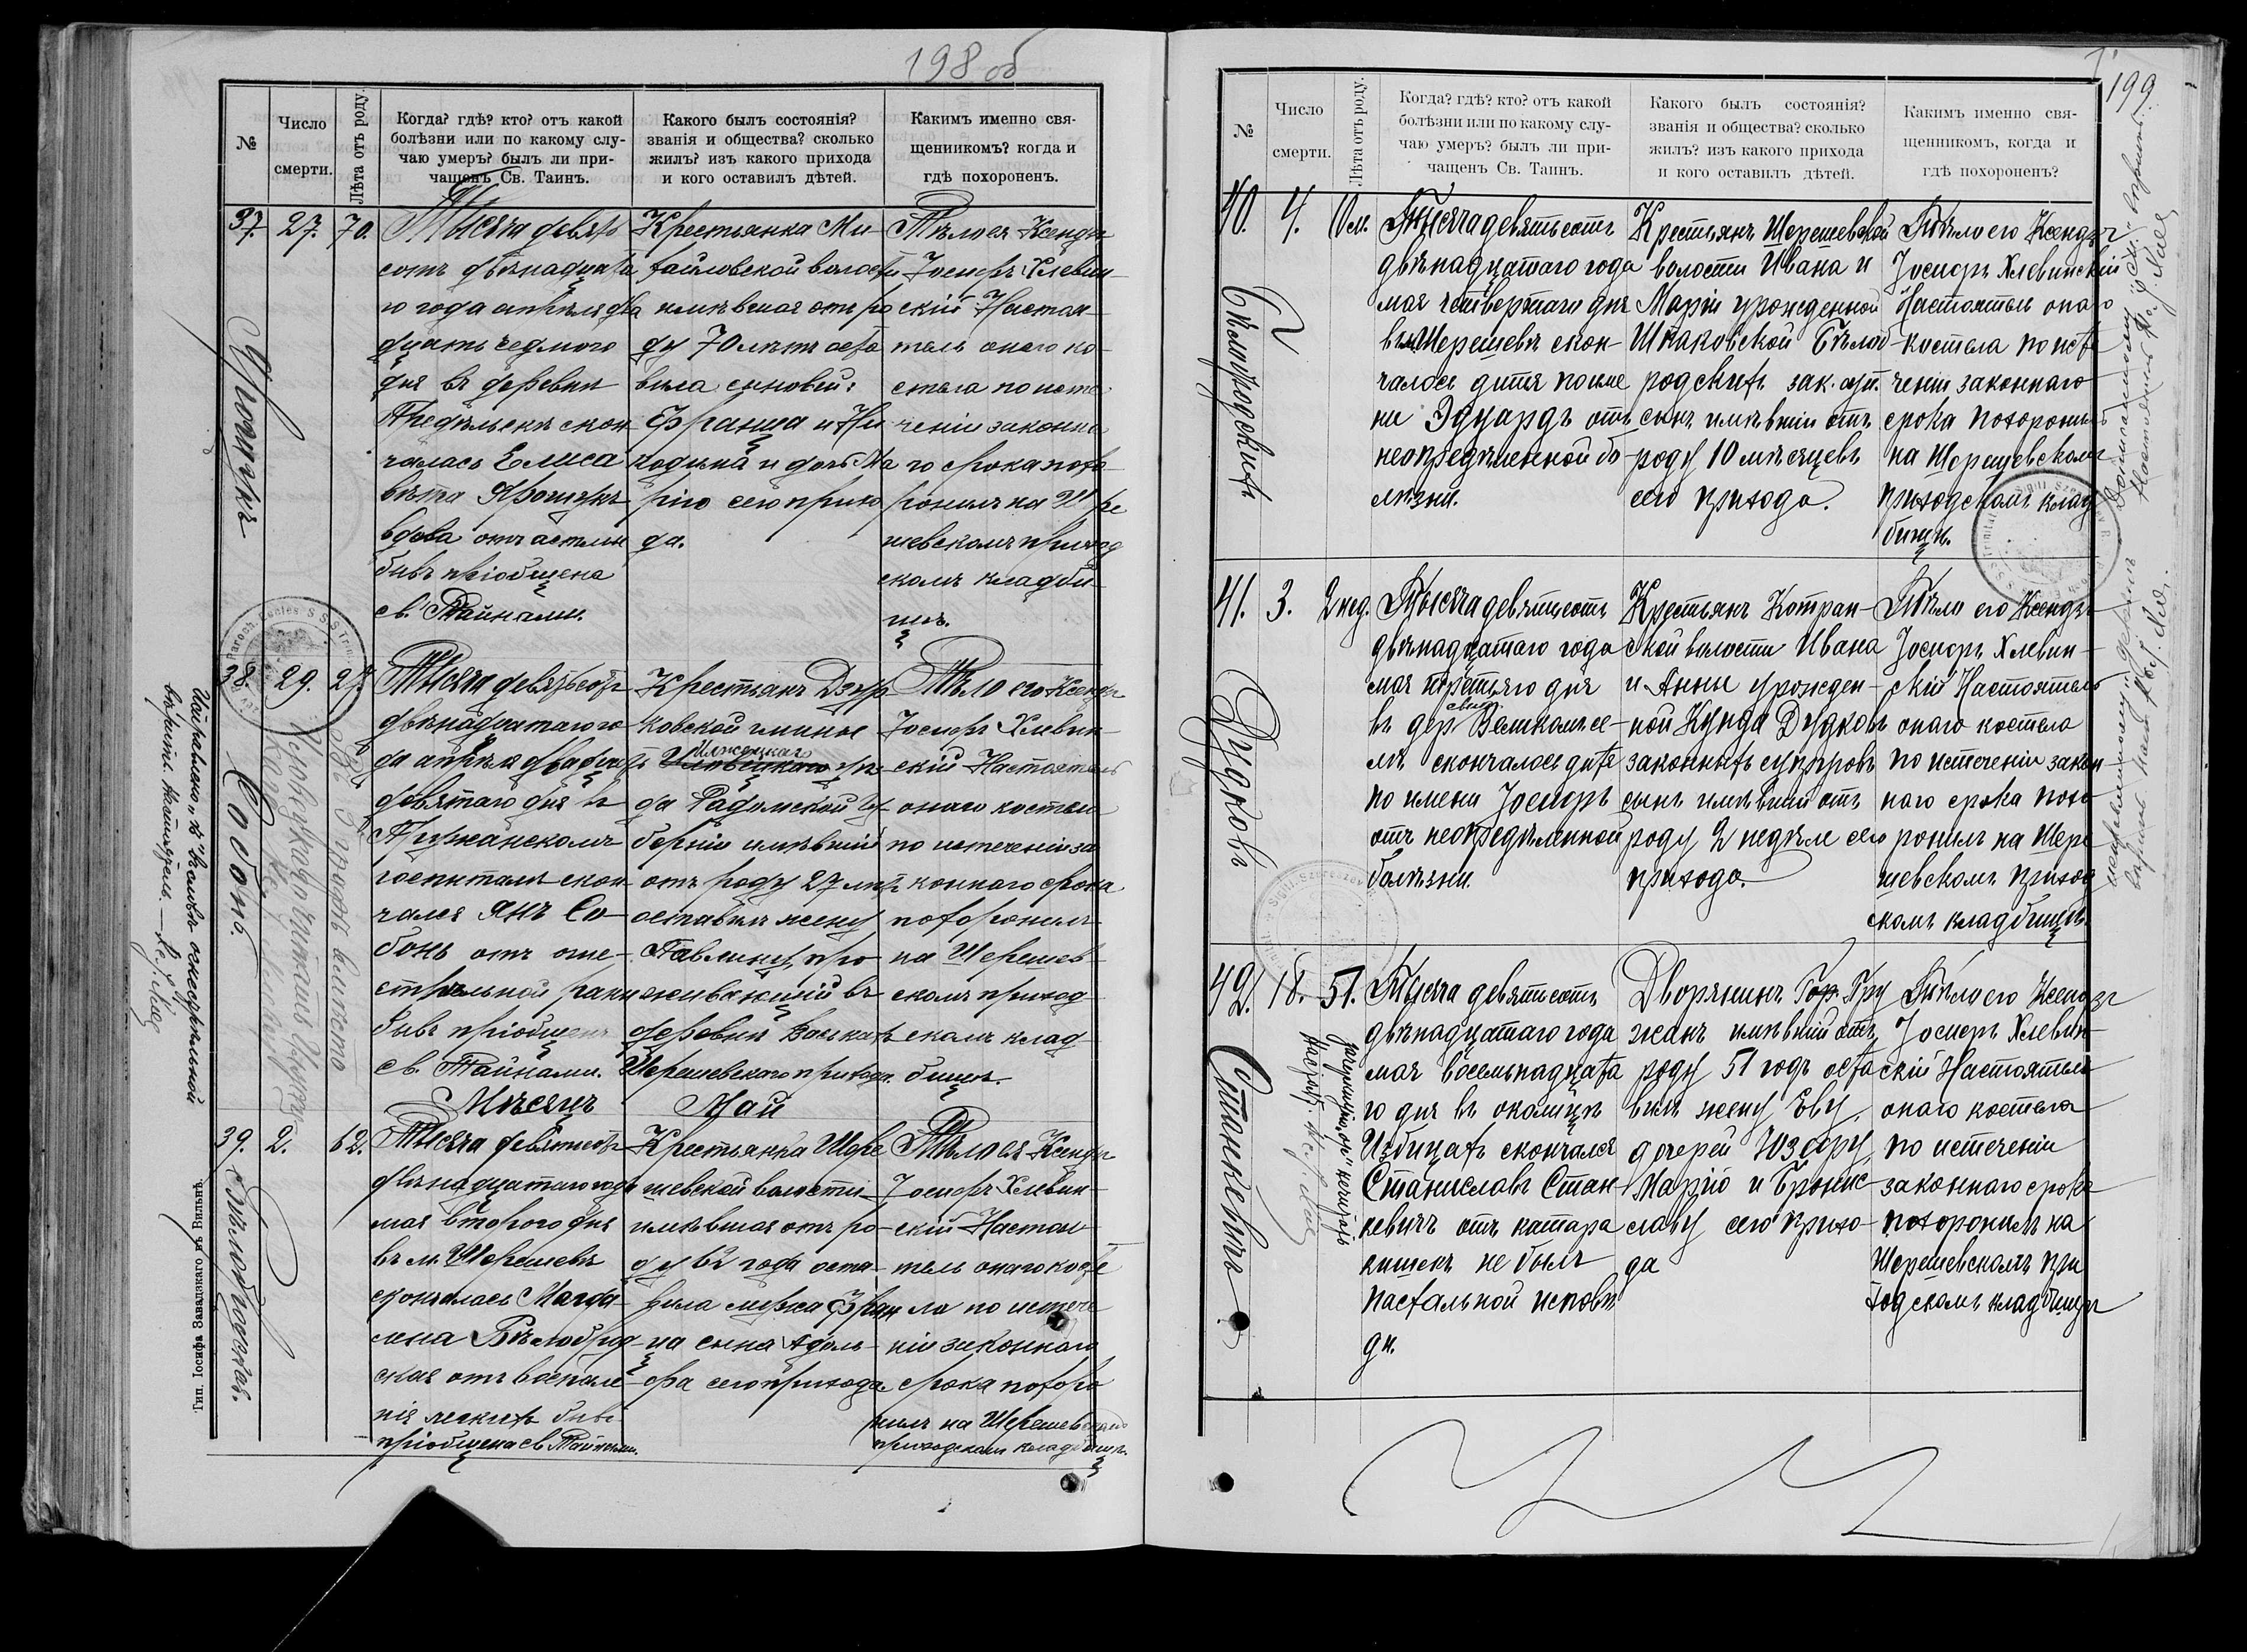 198 об
№
Число
смерти.
Лѣта отъ роду.
Когда? гдѣ? кто? отъ какой
болѣзни или по какому слу-
чаю умеръ? былъ ли при-
чащенъ Св. Таинъ.
Какого былъ состоянія?
званія и общества? сколько
жилъ? изъ какого прихода
и кого оставилъ дѣтей.
Какимъ именно свя-
щенникомъ? когда и
гдѣ похороненъ.
37. 27. 70.
Ярощукъ
Тысяча девять
сотъ двѣнадцата
го года апрѣля два
дцать седмого
дня въ деревни
скон
чалась Елиса
вѣта Ярощукъ
вдова отъ астмы
бывъ пріобщена
св. Тайнами.
Крестьянка Ми-
хайловской волости
имѣвшая отъ ро
ду 70 лѣтъ оста
вила сыновей:
Франца и Ни
кодима и дочь Ма
рію сего прихо
да.
Тѣло ея Ксендзъ
Іосифъ Хлевин-
скій Настоя-
тель онаго ко-
стела по исте
ченіи законна
го срока похо
ронилъ на Шере
шевскомъ приход
скомъ кладби-
щѣ.
38 29. 27.
Собонь.
Тысяча девятьсотъ
двѣнадцатаго го
да апрѣля двадцать
девятаго дня въ
Пружанскомъ
госпиталѣ скон
чался Янъ Со-
бонь отъ огне-
стрѣльной раны
бывъ пріобщенъ
св. Тайнами.
Крестьянъ Дзур
ковской гмины
Илжецкаго уѣз
да Радомской гу
берніи имѣвшій
отъ роду 27 лѣтъ
оставилъ жену
Павлину, про
живающій въ
деревни Васьках
Шерешевскаго прихода.
Тѣло его Ксендзъ
Іосифъ Хлевин
скій Настоятель
онаго костела
по истеченіи за
коннаго срока
похоронилъ
на Шерешев-
скомъ приход
скомъ клад
бищѣ.
Мѣсяцъ Май
39. 2. 62.
Бѣлобродская.
Тысяча девятьсотъ
двѣнадцатаго года
мая второго дня
въ м. Шерешевѣ
скончалась Магда-
лена Бѣлоброд-
ская отъ воспале
нія легкихъ бывъ
пріобщена св. Тайнами.
Крестьянка Шере
шевской волости
имѣвшая отъ ро-
ду 62 года оста-
вила мужа Фран
ца сына Адоль-
фа сего прихода.
Тѣло ея Ксендзъ
Іосифъ Хлевин-
скій Настоя-
тель онаго косте
ла по истече
ніи законнаго
срока похоро
нилъ на Шерешевскомъ
приходскомъ кладбищѣ.
Тип. Іосифа Завадзкаго въ Вильнѣ.
199
№
Число
смерти.
Лѣта отъ роду.
Когда? гдѣ? кто? отъ какой
болѣзни или по какому слу-
чаю умеръ? былъ ли при-
чащенъ Св. Таинъ.
Какого былъ состоянія?
званія и общества? сколько
жилъ? изъ какого прихода
и кого оставилъ дѣтей.
Какимъ именно свя-
щенникомъ, когда и
гдѣ похороненъ?
40. 4. 10 м.
Тысяча девятьсотъ
двѣнадцатаго года
мая четвертаго дня
въ м. Шерешевѣ скон-
чалось дитя по име
ни Эдуардъ отъ
неопредѣленной бо-
лѣзни.
Крестьянъ Шерешевской
волости Ивана и
Маріи урожденной
Шпаковской Бѣлоб-
родскихъ зак. суп.
сынъ имѣвшій отъ
роду 10 мѣсяцевъ
сего прихода.
Тѣло его Ксендзъ
Іосифъ Хлевинскій
Настоятель онаго
костела по исте
ченіи законнаго
срока похоронилъ
на Шерешевскомъ
приходскомъ клад
бищѣ.
41. 3. 2 нед.
Дудковъ
Тысяча девятьсотъ
двѣнадцатаго года
мая третьяго дня
въ дер. Великомъ се-
лѣ скончалось дитя
по имени Іосифъ
отъ неопредѣленной
болѣзни.
Крестьянъ Котран-
ской волости Ивана
и Анны урожден-
ной Кунда Дудковъ
законныхъ супруговъ
сынъ имѣвшій отъ
роду 2 недѣли сего
прихода.
Тѣло его Ксендзъ
Іосифъ Хлевин-
скій Настоятель
онаго костела
по истеченіи закон
наго срока похо
ронилъ на Шере
шевскомъ приход
скомъ кладбищѣ.
42. 18. 51.
Станкевичъ
Тысяча девятьсотъ
двѣнадцатаго года
мая восемьнадцата
го дня въ околицѣ
Избицахъ скончался
Станиславъ Стан-
кевичъ отъ катара
кишекъ не былъ
пасхальной исповѣ
ди.
Дворянинъ Гор. Пру
жанъ имѣвшій отъ
роду 51 годъ оста
вилъ жену Еву,
дочерей Юзефу,
Марію и Бронис-
славу сего прихо-
да
Тѣло его Ксендзъ
Іосифъ Хлевин-
скій Настоятель
онаго костела
по истеченіи
законнаго срока
похоронилъ на
Шерешевскомъ при
ходскомъ кладбищѣ